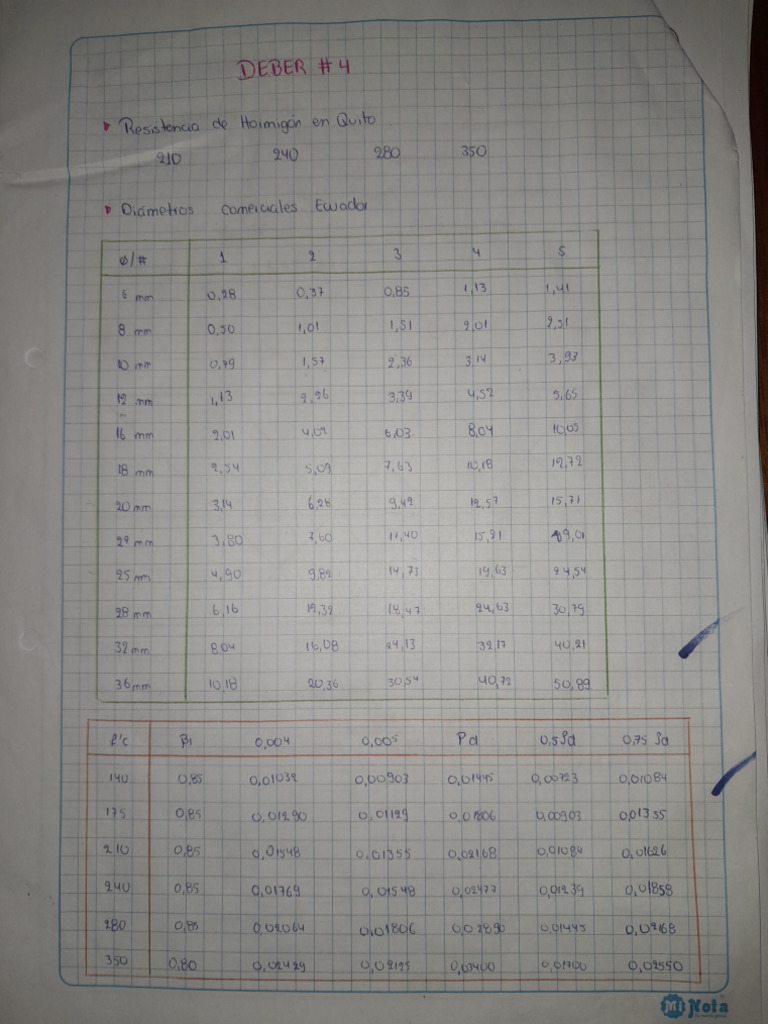 DEBER # 4
Resistencia de Hormigón en Quito
210 240 280 350
Diámetros comerciales Ecuador
Ø/# 1 2 3 4 5
6 mm 0,28 0,37 0,85 1,13 1,41
8 mm 0,50 1,01 1,51 2,01 2,51
10 mm 0,79 1,57 2,36 3,14 3,93
12 mm 1,13 2,26 3,39 4,52 5,65
16 mm 2,01 4,02 6,03 8,04 10,05
18 mm 2,54 5,09 7,63 10,18 12,72
20 mm 3,14 6,28 9,42 12,57 15,71
22 mm 3,80 7,60 11,40 15,21 19,01
25 mm 4,90 9,82 14,73 19,63 24,54
28 mm 6,16 12,32 18,47 24,63 30,79
32 mm 8,04 16,08 24,13 32,17 40,21
36 mm 10,18 20,36 30,54 40,72 50,89
f'c β1 0,004 0,005 Pd 0.5 ρd 0.75 ρd
140 0,85 0,01032 0,00903 0,01445 0,00723 0,01084
175 0,85 0,01290 0,01129 0,01806 0,00903 0,01355
210 0,85 0,01548 0,01355 0,02168 0,01084 0,01626
240 0,85 0,01769 0,01548 0,02477 0,01239 0,01858
280 0,85 0,02064 0,01806 0,02890 0,01445 0,02168
350 0,80 0,02429 0,02125 0,03400 0,01700 0,02550
Mi Nota